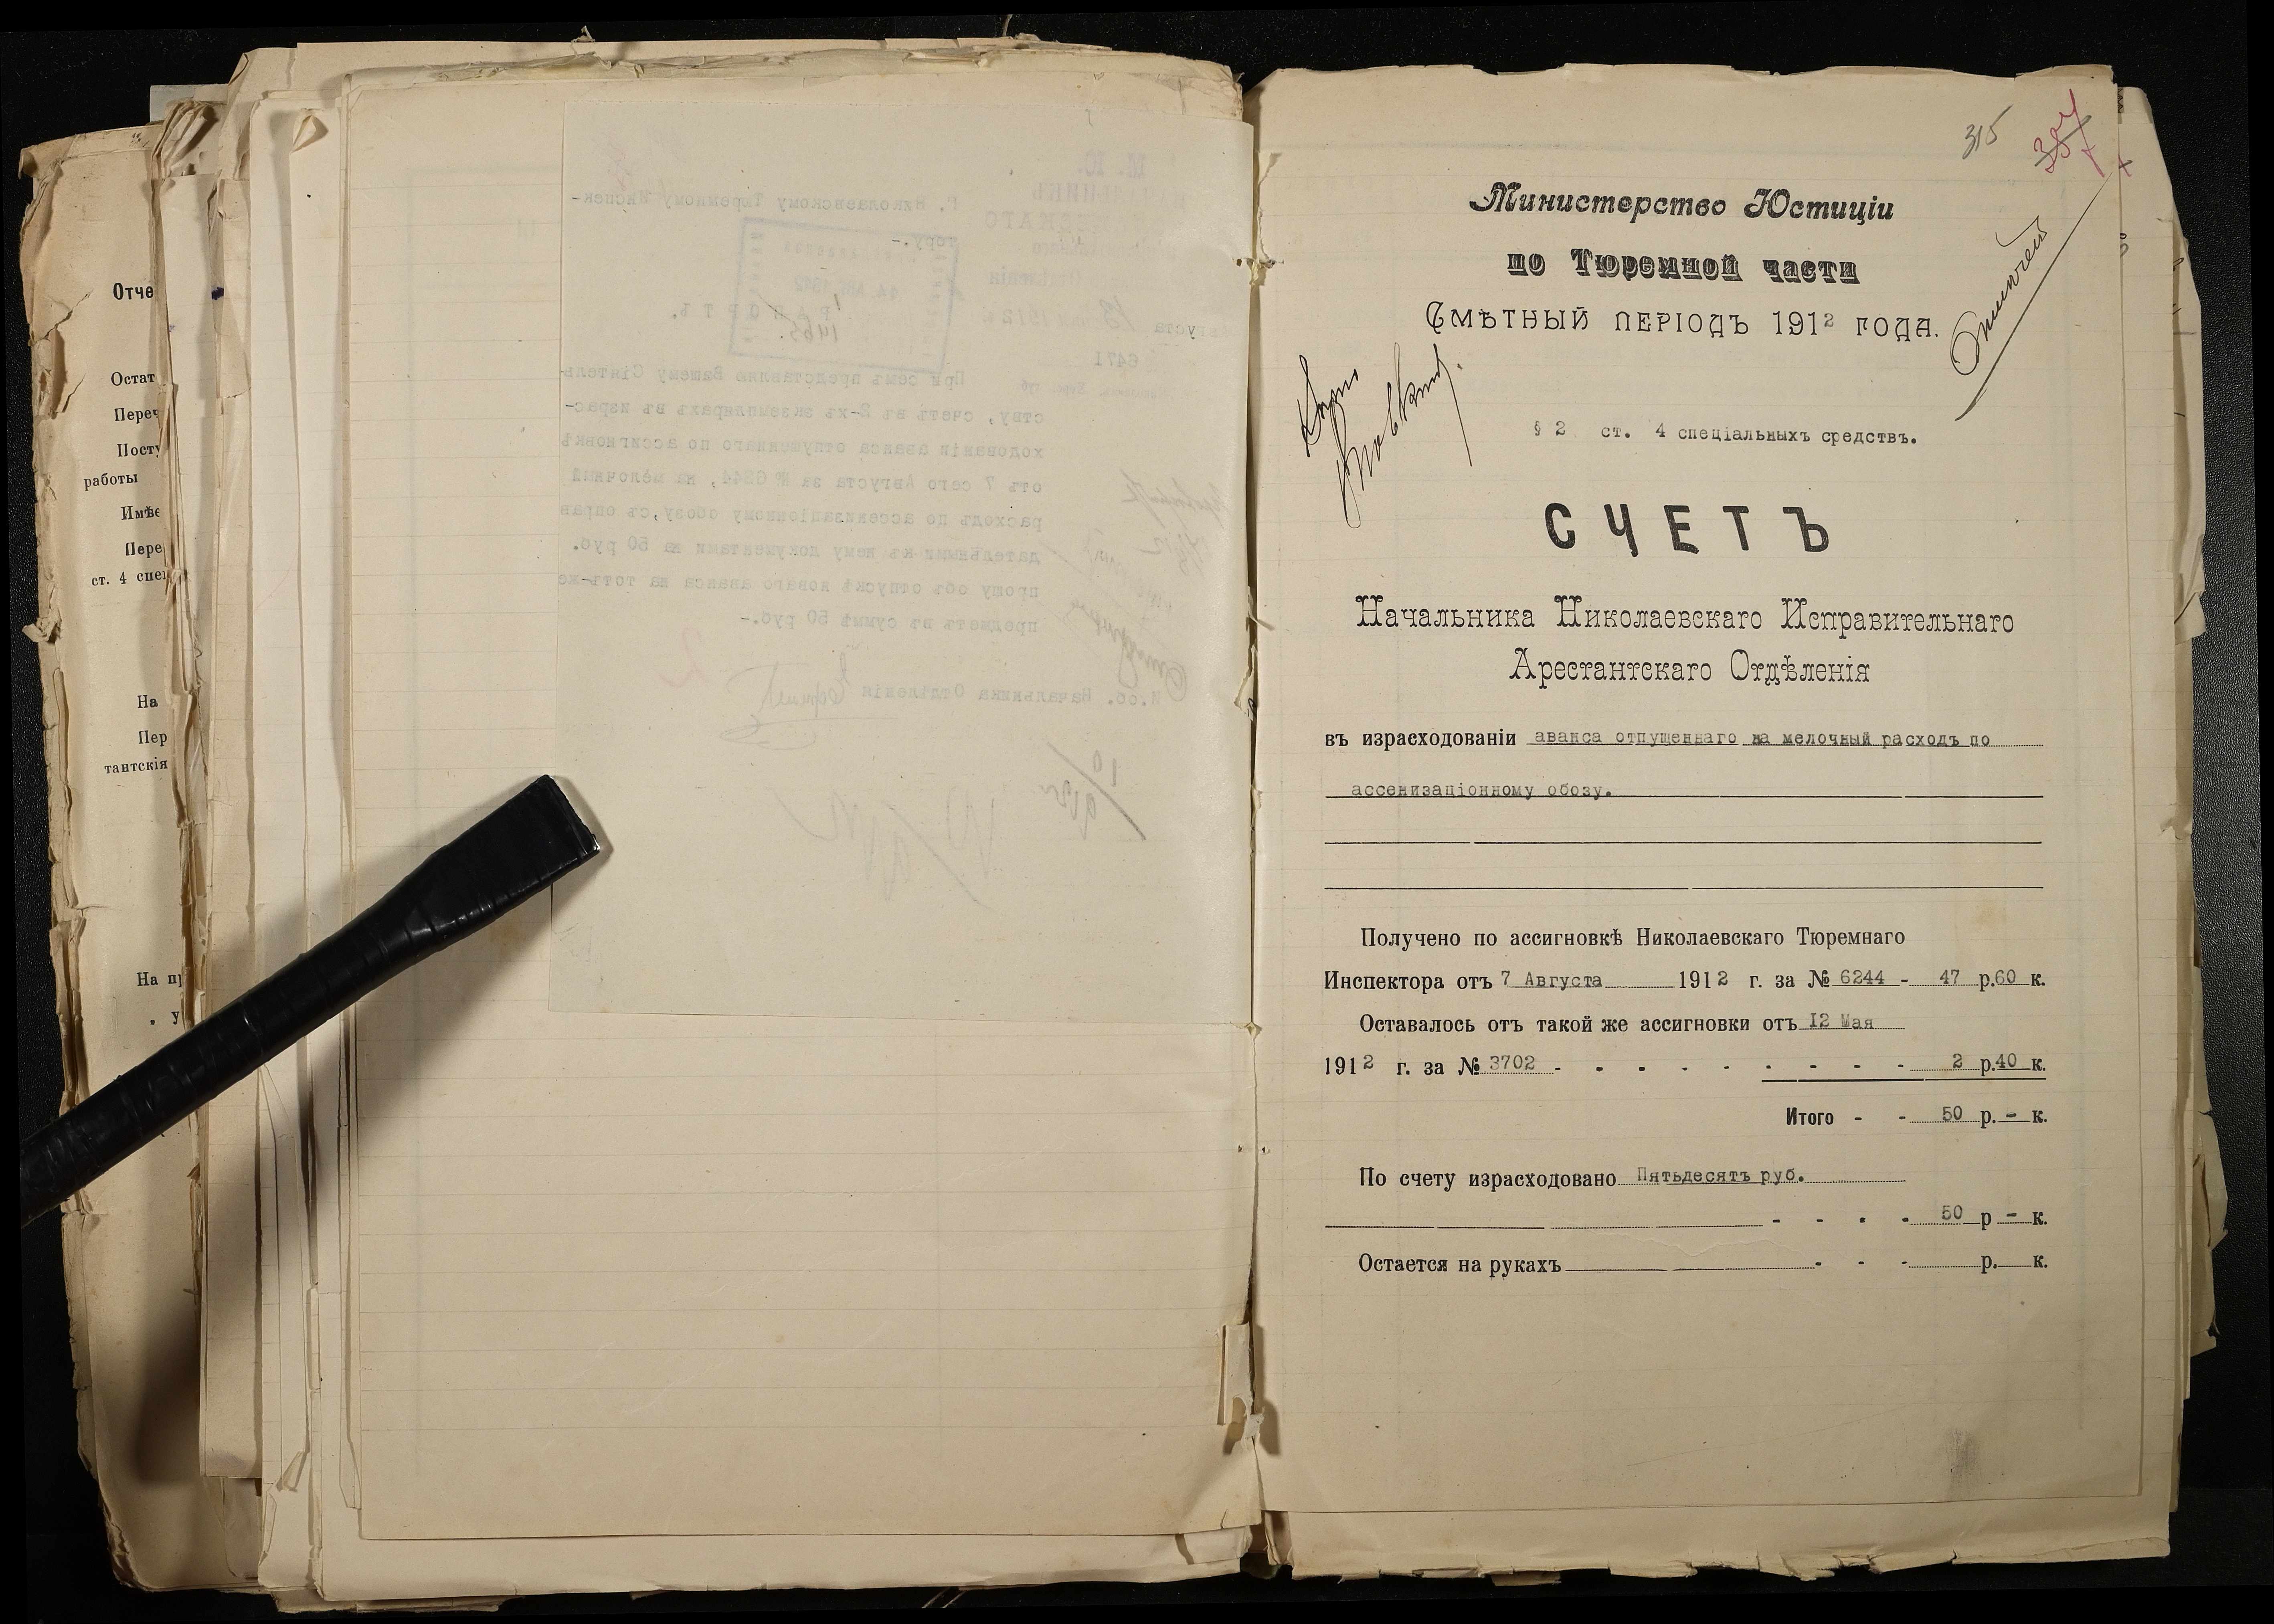 Отче
Остат
Переч
Посту
работы
Имѣе
Пере
ст. 4 спец
На
Пер
тантскія
На пр
Г. Николаевскому Тюремному Инспек-
тору.-
РАПОРТЪ.
6471
При семъ представляю Вашему Сіятель-
ству, счетъ въ 2-хъ экземплярахъ въ израс-
ходованіи аванса отпущеннаго по ассигновкѣ
отъ 7 сего Августа за № 6244, на мелочный
расходъ по ассенизаціонному обозу, съ оправ
дательными къ нему документами на 50 руб.
прошу объ отпускѣ новаго аванса на тотъ-же
предметъ въ суммѣ 50 руб.-
И.об. Начальника Отдѣленія
315
357
Министерство Юстиціи
по Тюремной части
Смѣтный періодъ 1912 года.
§ 2 ст. 4 спеціальныхъ средствъ.
СЧЕТЪ
Начальника Николаевскаго Исправительнаго
Арестантскаго Отдѣленія
въ израсходованіи аванса отпущеннаго на мелочный расходъ по
ассенизаціонному обозу.
Получено по ассигновкѣ Николаевскаго Тюремнаго
Инспектора отъ 7 Августа 1912 г. за № 6244 - 47 р. 60 к.
Оставалось отъ такой же ассигновки отъ 12 Мая
1912 г. за № 3702 - - - - - - - - - 2 р. 40 к.
Итого - - 50 р. - к.
По счету израсходовано Пятьдесятъ руб.
- - - - 50 р - к.
Остается на рукахъ - - - р. к.